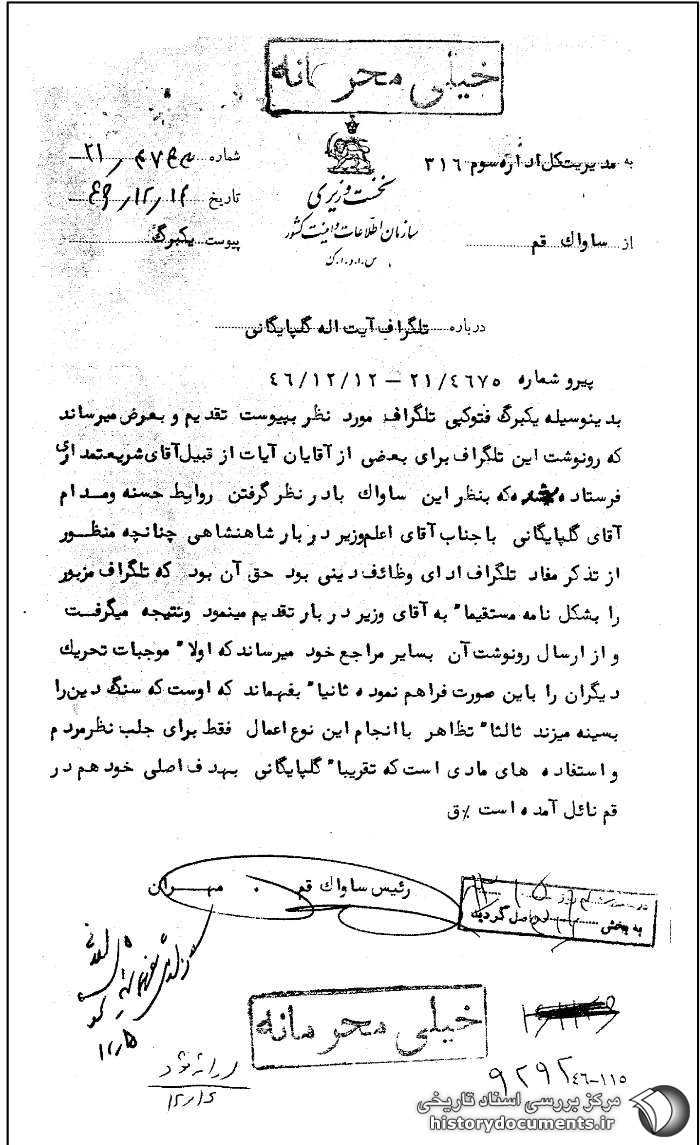 خیلی محرمانه
به مدیریت کل اداره سوم ۳۱۶
شماره ۲۱/
نخست وزیری
تاریخ ۴۶/۱۲/۱۲
سازمان اطلاعات و امنیت کشور
از ساواك قم
پیوست یکبرگ
س.ا.و.ا.ک
درباره تلگراف آیت اله گلپایگانی
پیرو شماره ۲۱/۴۶۷۵ – ۴۶/۱۲/۱۲
بدینوسیله یکبرگ فتوکپی تلگراف مورد نظر بپیوست تقدیم و بعرض میرساند
که رونوشت این تلگراف برای بعضی از آقایان آیات از قبیل آقای شریعتمداری
فرستاده شده که بنظر این ساواك بادر نظر گرفتن روابط حسنه ومدام
آقای گلپایگانی باجناب آقای اعلم وزیر دربار شاهنشاهی چنانچه منظور
از تذکر مفاد تلگراف ادای وظائف دینی بود حق آن بود که تلگراف مزبور
را بشکل نامه مستقیما" به آقای وزیر دربار تقدیم مینمود ونتیجه میگرفت
و از ارسال رونوشت آن بسایر مراجع خود میرساند که اولا" موجبات تحریك
دیگران را باین صورت فراهم نموده ثانیا" بفهماند که اوست که سنگ دین را
بسینه میزند ثالثا" تظاهر باانجام این نوع اعمال فقط برای جلب نظر مردم
و استفاده های مادی است که تقریبا" گلپایگانی بهدف اصلی خود هم در
قم نائل آمده است ٪ق
رئیس ساواك قم . مهران
روز
به بخش واصل گردید
۱۲/۵
خیلی محرمانه
ارائه شود
۱۲/۱۶
۹۲۹۲
۴۶-۱۱۵
مرکز بررسی اسناد تاریخی
historydocuments.ir